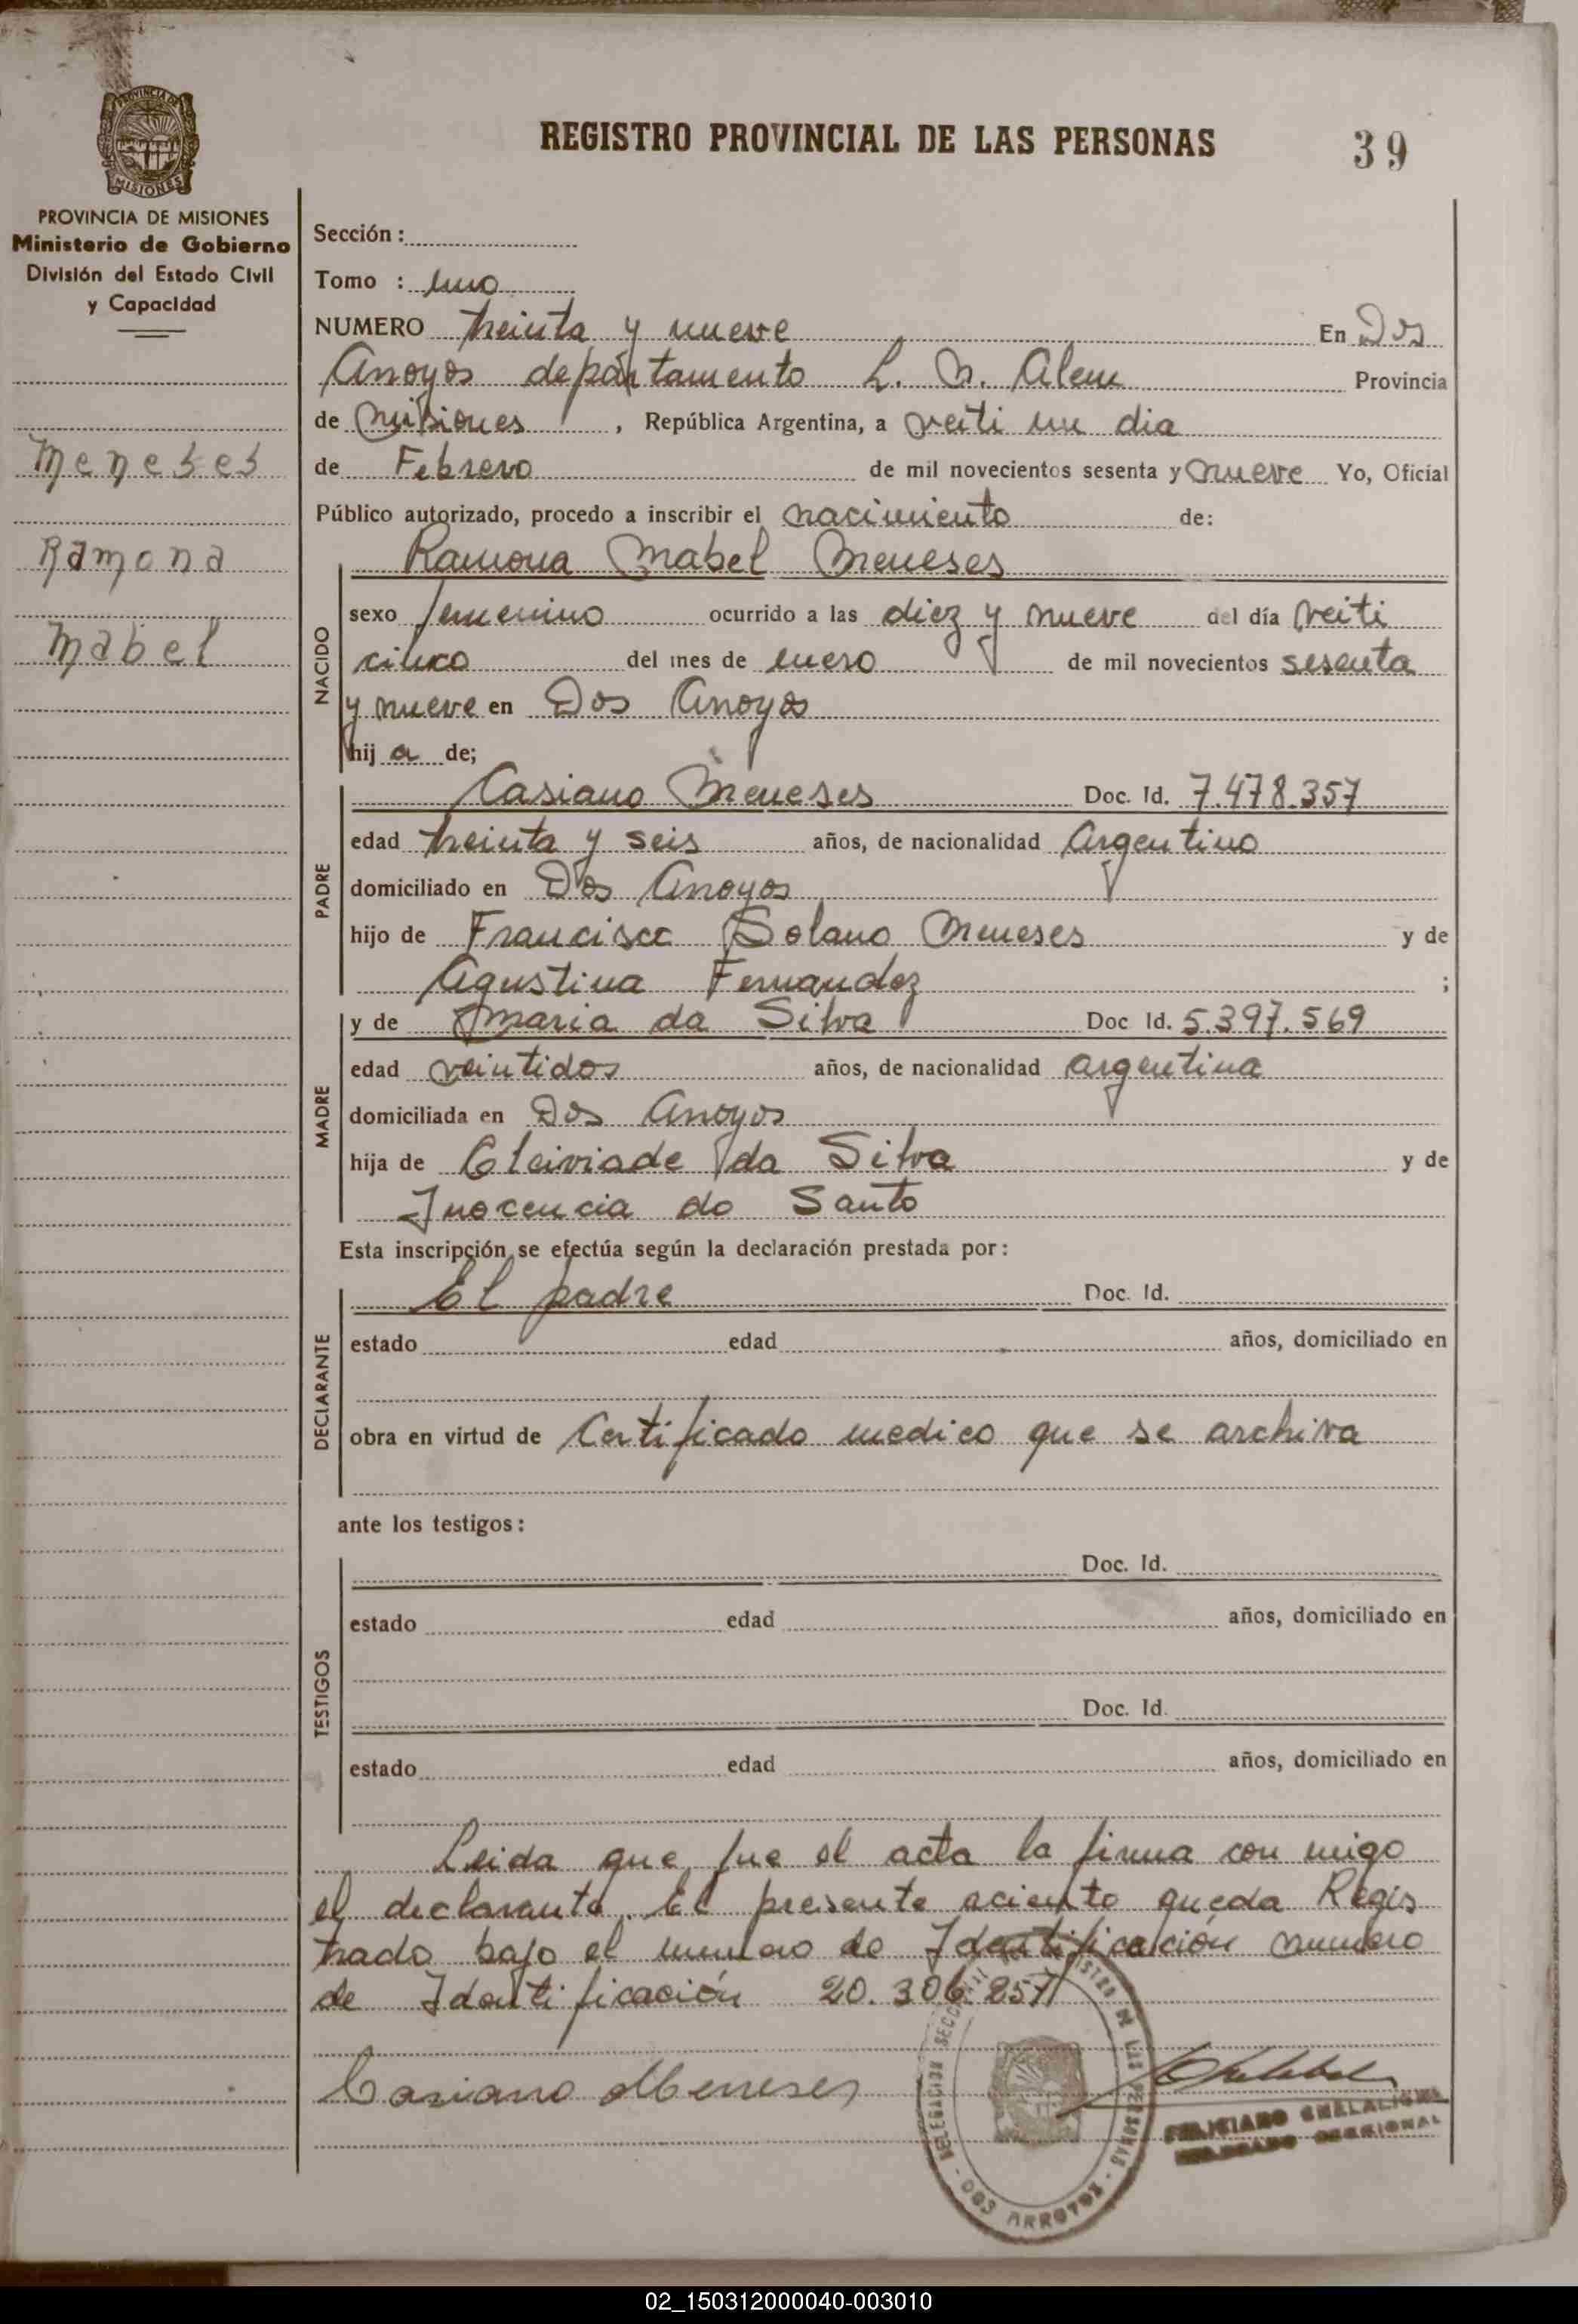 REGISTRO PROVINCIAL DE LAS PERSONAS 39
PROVINCIA DE
MISIONES
PROVINCIA DE MISIONES
Ministerio de Gobierno
División del Estado Civil
y Capacidad
Meneses
Ramona
Mabel
Sección :
Tomo : uno
NUMERO treinta y nueve En Dos
Arroyos departamento L. N. Alem Provincia
de Misiones , República Argentina, a veiti un dia
de Febrero de mil novecientos sesenta y nueve Yo, Oficial
Público autorizado, procedo a inscribir el nacimiento de:
Ramona Mabel Meneses
NACIDO
sexo femenino ocurrido a las diez y nueve del día veiti
cinco del mes de enero de mil novecientos sesenta
y nueve en Dos Arroyos
hij a de;
PADRE
Casiano Meneses Doc. Id. 7.478.357
edad treinta y seis años, de nacionalidad Argentino
domiciliado en Dos Arroyos
hijo de Francisco Solano Meneses y de
Agustina Fernandez ;
MADRE
y de Maria da Silva Doc Id. 5.397.569
edad veintidos años, de nacionalidad argentina
domiciliada en Dos Arroyos
hija de Elciviade da Silva y de
Inocencia do Santo
Esta inscripción se efectúa según la declaración prestada por:
DECLARANTE
El padre Doc. Id.
estado edad años, domiciliado en
obra en virtud de Certificado medico que se archiva
ante los testigos:
TESTIGOS
Doc. Id.
estado edad años, domiciliado en
Doc. Id.
estado edad años, domiciliado en
Leida que fue el acta la firma con migo
el declarante. El presente aciento queda Regis
trado bajo el numero de Identificación numero
de Identificación 20.306.857
Casiano Meneses
DELEGACION SECCIONAL REGISTRO DE LAS PERSONAS - DOS ARROYOS -
FELICIANO
DELEGADO SECCIONAL
02_150312000040-003010